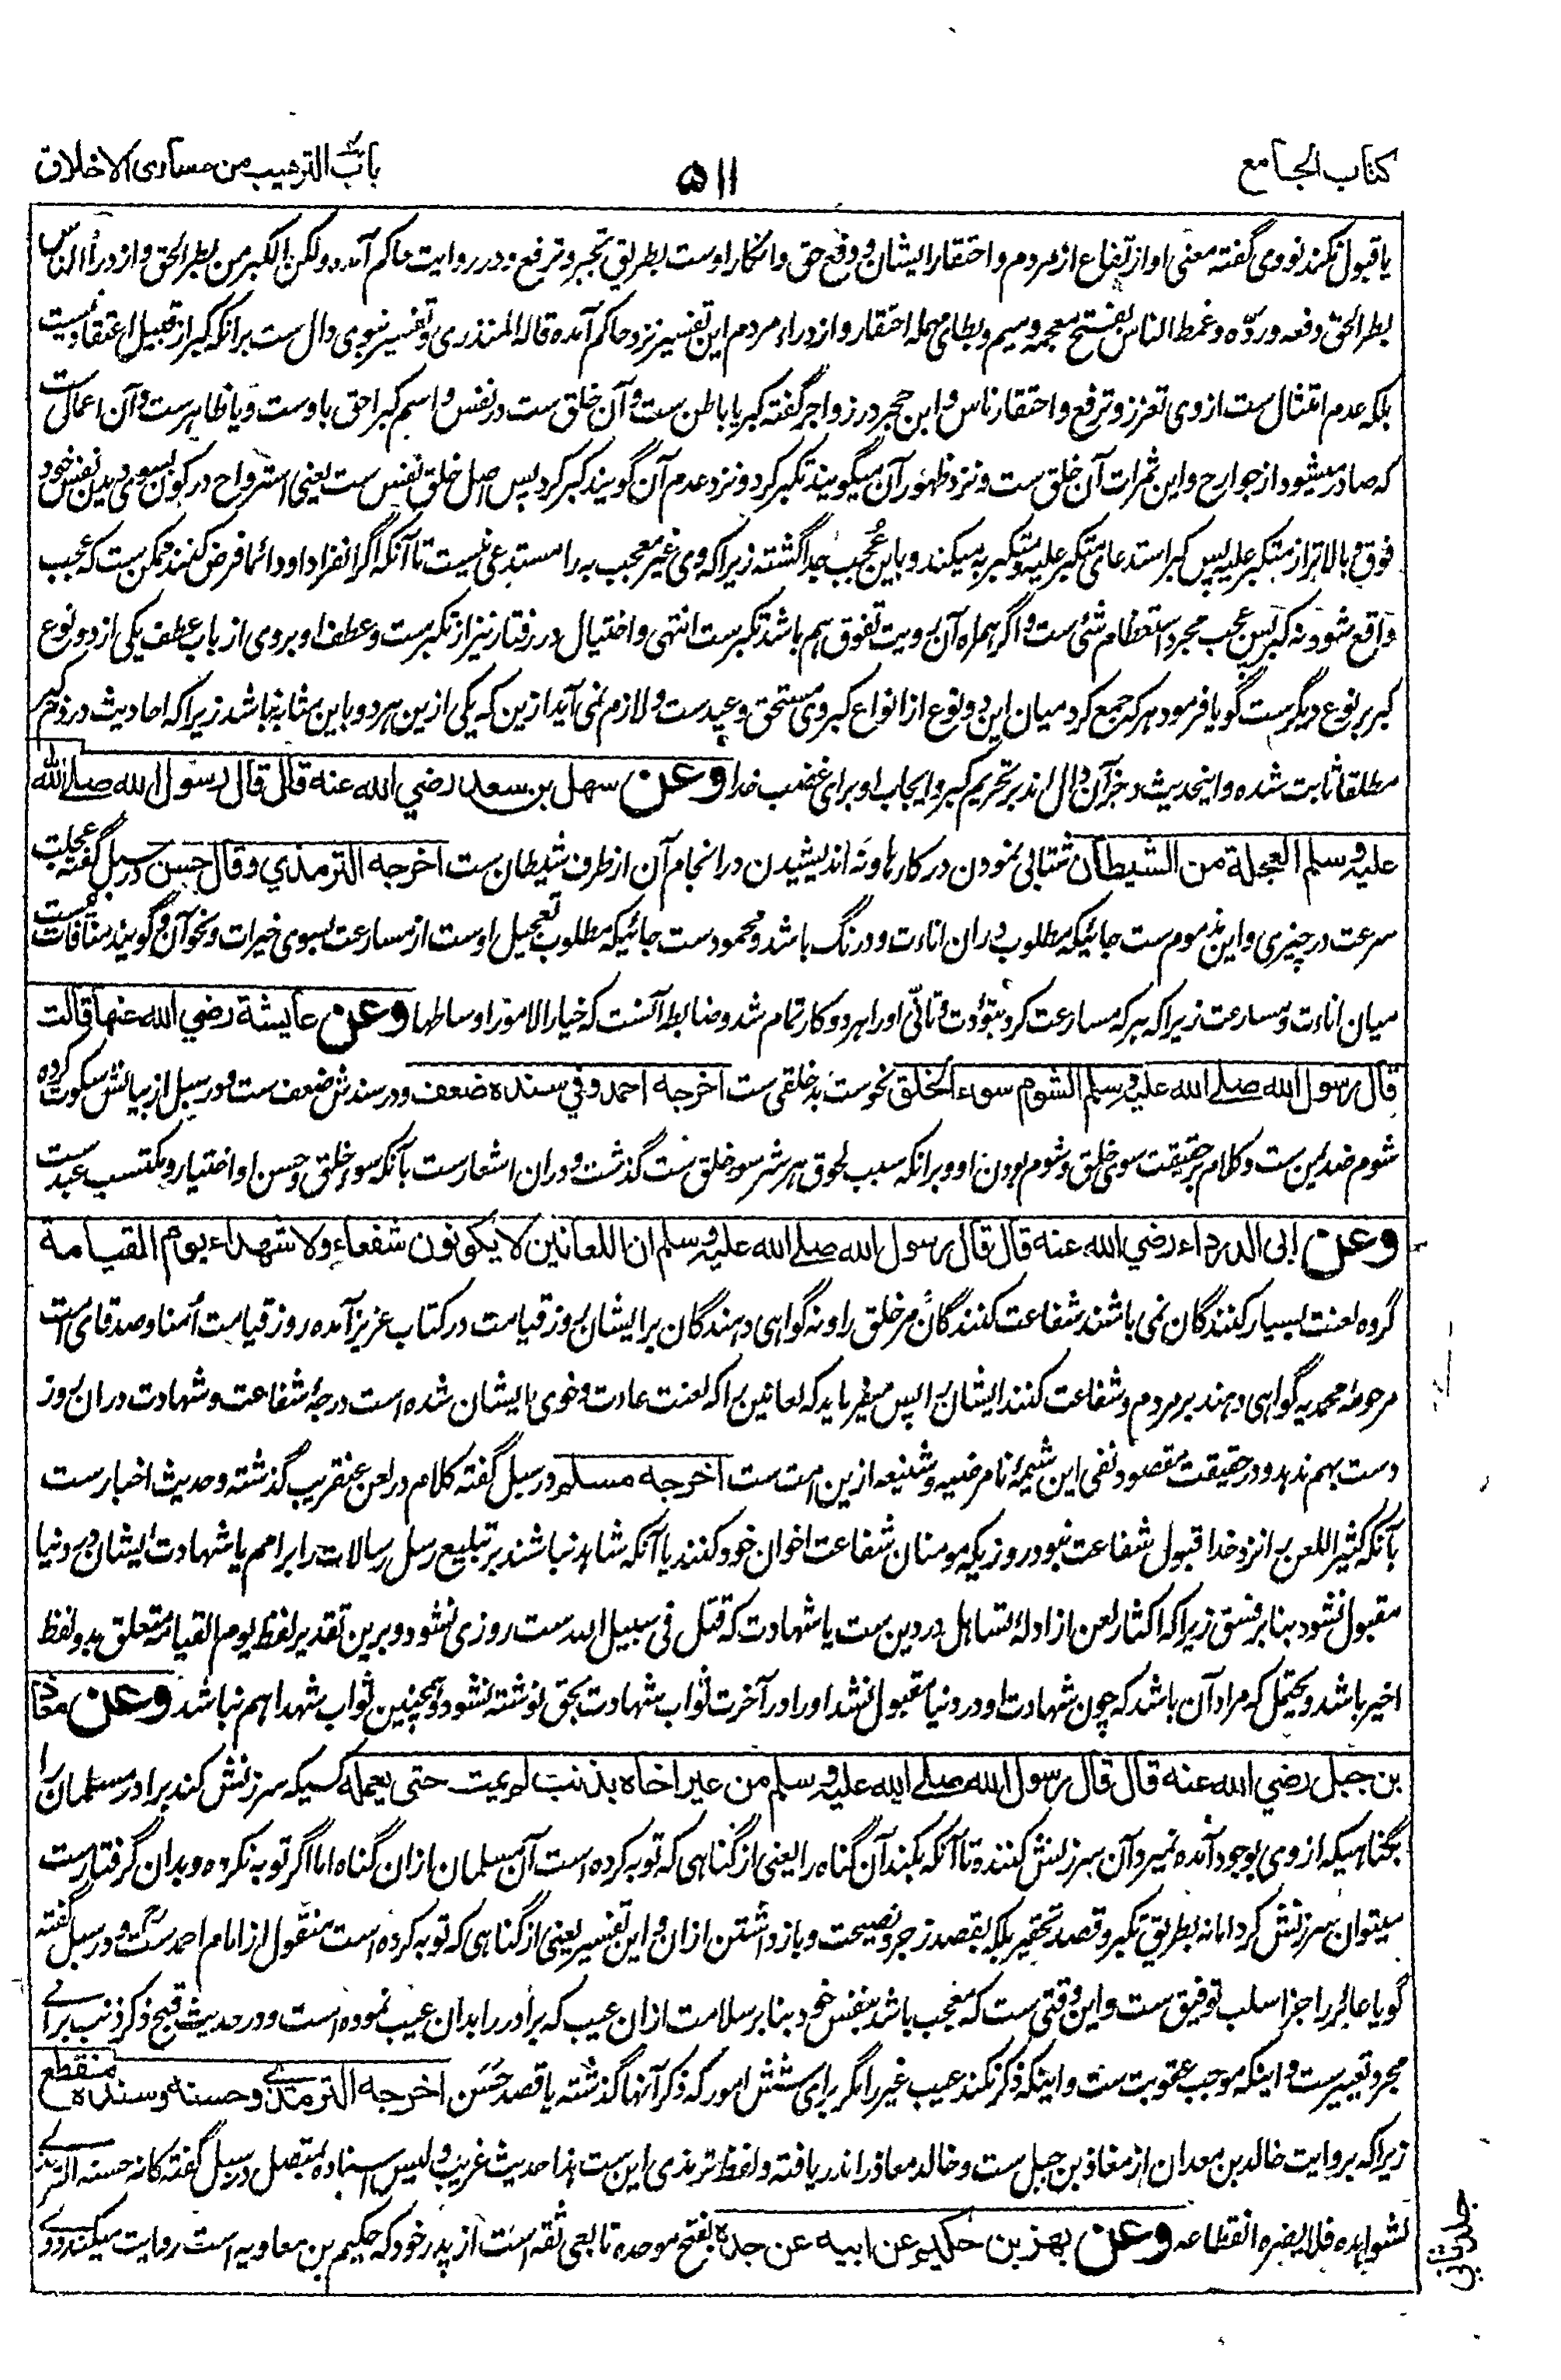 كتاب الجامع
٥١١
باب الترهيب من مساوى الاخلاق
یا قبول نکند نووی گفته معنی او ارتفاع از مردم و احتقار ایشان و دفع حق و انکار اوست بطریق تجبر و ترفع و در روایت حاکم آمده ولکن الکبر من بطر الحق وازدرأ الناس
بطر الحق دفعه و ردّه و غمط الناس بفتح معجمه و میم و بطای مهمله احتقار و ازدراء مردم این تفسیر نزد حاکم آمده قاله المنذری و تفسیر نبوی دال ست برانکه کبر از قبیل اعتقاد نیست
بلکه عدم امتثال ست از وی تعزز و ترفع و احتقار ناس و ابن حجر در زواجر گفته کبر یا باطن ست و آن خلق ست در نفس و اسم کبر احق باوست و یا ظاهرست و آن اعمالی ست
که صادر میشود از جوارح و این ثمرات آن خلق ست و نزد ظهور آن میگویند تکبر کرد و نزد عدم آن گویند کبر کرد پس اصل خلق نفس ست یعنی استرواح و رکون بسوی دیدن نفس خود
فوق و بالاتر از متکبر علیه پس کبر استدعای متکبر علیه و متکبر به میکند و باین عُجب جدا گشته زیرا که وی غیر معجب به را مستدعی نیست تا آنکه اگر انفراد او دائما فرض کنند ممکن ست که عجب
واقع شود نه کبر پس عجب مجرد استعظام شئ ست و اگر همراه آن رویت تفوق هم باشد تکبر ست انتهی و اختیال در رفتار نیز از تکبرست و عطف او بر وی از باب عطف یکی از دو نوع
کبر بر نوع دیگرست گویا فرمود هر که جمع کرد میان این دو نوع از انواع کبر وی مستحق وعید ست و لازم نمی آید ازین که یکی ازین هر دو باین مثابه نباشد زیرا که احادیث در ذم کبر
مطلقا ثابت شده و اینحدیث و جز آن دال اند بر تحریم کبر و ایجاب او برای غضب خدا وعن سهل بن سعد رضي الله عنه قال قال رسول الله صلے الله
عليه وسلم العجلة من الشيطان شتابی نمودن در کارها و نه اندیشیدن در انجام آن از طرف شیطان ست اخرجه الترمذي وقال حسن در سبل گفته عجلت
سرعت در چیزی و این مذموم ست جائیکه مطلوب دران اناءت و درنگ باشد و محمود ست جائیکه مطلوب تعجیل اوست از مسارعت بسوی خیرات و نحو آن و گویند منافات نیست
میان اناءت و مسارعت زیرا که هر که مسارعت کرد بتؤدت و تانّی او را هر دو کار تمام شد و ضابطه آنست که خیار الامور اوساطها وعن عايشة رضي الله عنها قالت
قال رسول الله صلے الله عليه وسلم الشوم سوء الخلق نحوست بد خلقی ست اخرجه احمد وفي سنده ضعف و در سندش ضعف ست و در سبل از بیانش سکوت کرده
شوم ضد یمن ست و کلام بر حقیقت سوی خلق و شوم بودن او و برانکه سبب لحوق هر شر سوء خلق ست گذشت و دران اشعار ست بآنکه سوء خلق و حسن او اختیار و مکتسب عبد ست
وعن ابى الدرداء رضي الله عنه قال قال رسول الله صلے الله عليه وسلم ان اللعانين لا يكونون شفعاء ولا شهداء يوم القيامة
گروه لعنت بسیار کنندگان نمی باشند شفاعت کنندگان مر خلق را و نه گواهی دهندگان بر ایشان بروز قیامت در کتاب عزیز آمده روز قیامت اُمنا و صدقای امت
مرحومهٔ محمدیه گواهی دهند بر مردم و شفاعت کنند ایشان را پس میفرماید که لعانین را که لعنت عادت و خوی ایشان شده است درجهٔ شفاعت و شهادت دران روز
دست بهم ندهد و در حقیقت مقصود نفی این شیمهٔ نامرضیه و شنیعه ازین امت ست اخرجه مسلم و در سبل گفته کلام در لعن عنقریب گذشته و حدیث اخبار ست
بآنکه کثیر اللعن را نزد خدا قبول شفاعت نبود روزیکه مومنان شفاعت اخوان خود کنند یا آنکه شاهد نباشند بر تبلیغ رسل رسالات را بر امم یا شهادت ایشان در دنیا
مقبول نشود بنابر فسق زیرا که اکثار لعن از ادلهٔ تساهل در دین ست یا شهادت که قتل فی سبیل الله ست روزی نشود و برین تقدیر لفظ یوم القیامة متعلق بدو لفظ
اخیر باشد و یحتمل که مراد آن باشد که چون شهادت او در دنیا مقبول نشد او را در آخرت ثواب شهادت بحق نوشته نشود و همچنین ثواب شهدا هم نباشد وعن معاذ
بن جبل رضي الله عنه قال قال رسول الله صلے الله عليه وسلم من عير اخاه بذنب لم يمت حتى يعمله کسیکه سرزنش کند برادر مسلمان را
بگناهیکه از وی بوجود آمده نمیرد آن سرزنش کننده تا آنکه بکند آن گناه را یعنی از گناهی که توبه کرده است آن مسلمان ازان گناه اما اگر توبه نکرده و بدان گرفتار ست
میتوان سرزنش کرد اما نه بطریق تکبر و قصد تحقیر بلکه بقصد زجر و نصیحت و باز داشتن ازان و این تفسیر یعنی از گناهی که توبه کرده است منقول از امام احمد ست و در سبل گفته
گویا عائر را جزا سلب توفیق ست و این وقتی ست که معجب باشد بنفس خود بنا بر سلامت ازان عیب که برادر را بدان عیب نموده است و در حدیث قبح ذکر ذنب برای
مجرد تعییر ست و اینکه موجب عقوبت ست و اینکه ذکر نکند عیب غیر را مگر برای شش امور که ذکر آنها گذشته با قصد حَسَن اخرجه الترمذي وحسنه وسنده منقطع
زیرا که بروایت خالد بن معدان از معاذ بن جبل ست و خالد معاذ را ندریافته و لفظ ترمذی این ست هذا حدیث غریب ولیس اسناده بمتصل در سبل گفته کانه حسنه الترمذی
لشواهده فلا یضره انقطاعه وعن بهز بن حكيم عن ابيه عن جده بفتح موحده تابعی ثقه است از پدر خود که حکیم بن معاویه است روایت میکند و وی
جلد ثانی